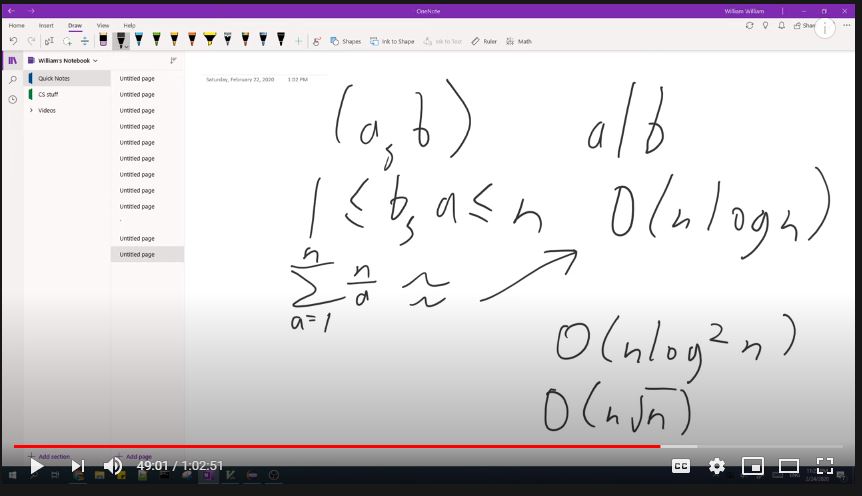 OneNote
William William
Home Insert Draw View Help
Shapes Ink to Shape Ink to Text Ruler Math
William's Notebook
Quick Notes
CS stuff
Videos
Untitled page
Untitled page
Untitled page
Untitled page
Untitled page
Untitled page
Untitled page
Untitled page
Untitled page
Untitled page
Untitled page
Saturday, February 22, 2020 1:02 PM
(a, b) a|b
1 ≤ b, a ≤ n O(n log n)
n
∑ n/a ≈
a=1
O(n log² n)
O(n√n)
Add section
Add page
49:01 / 1:02:51
CC